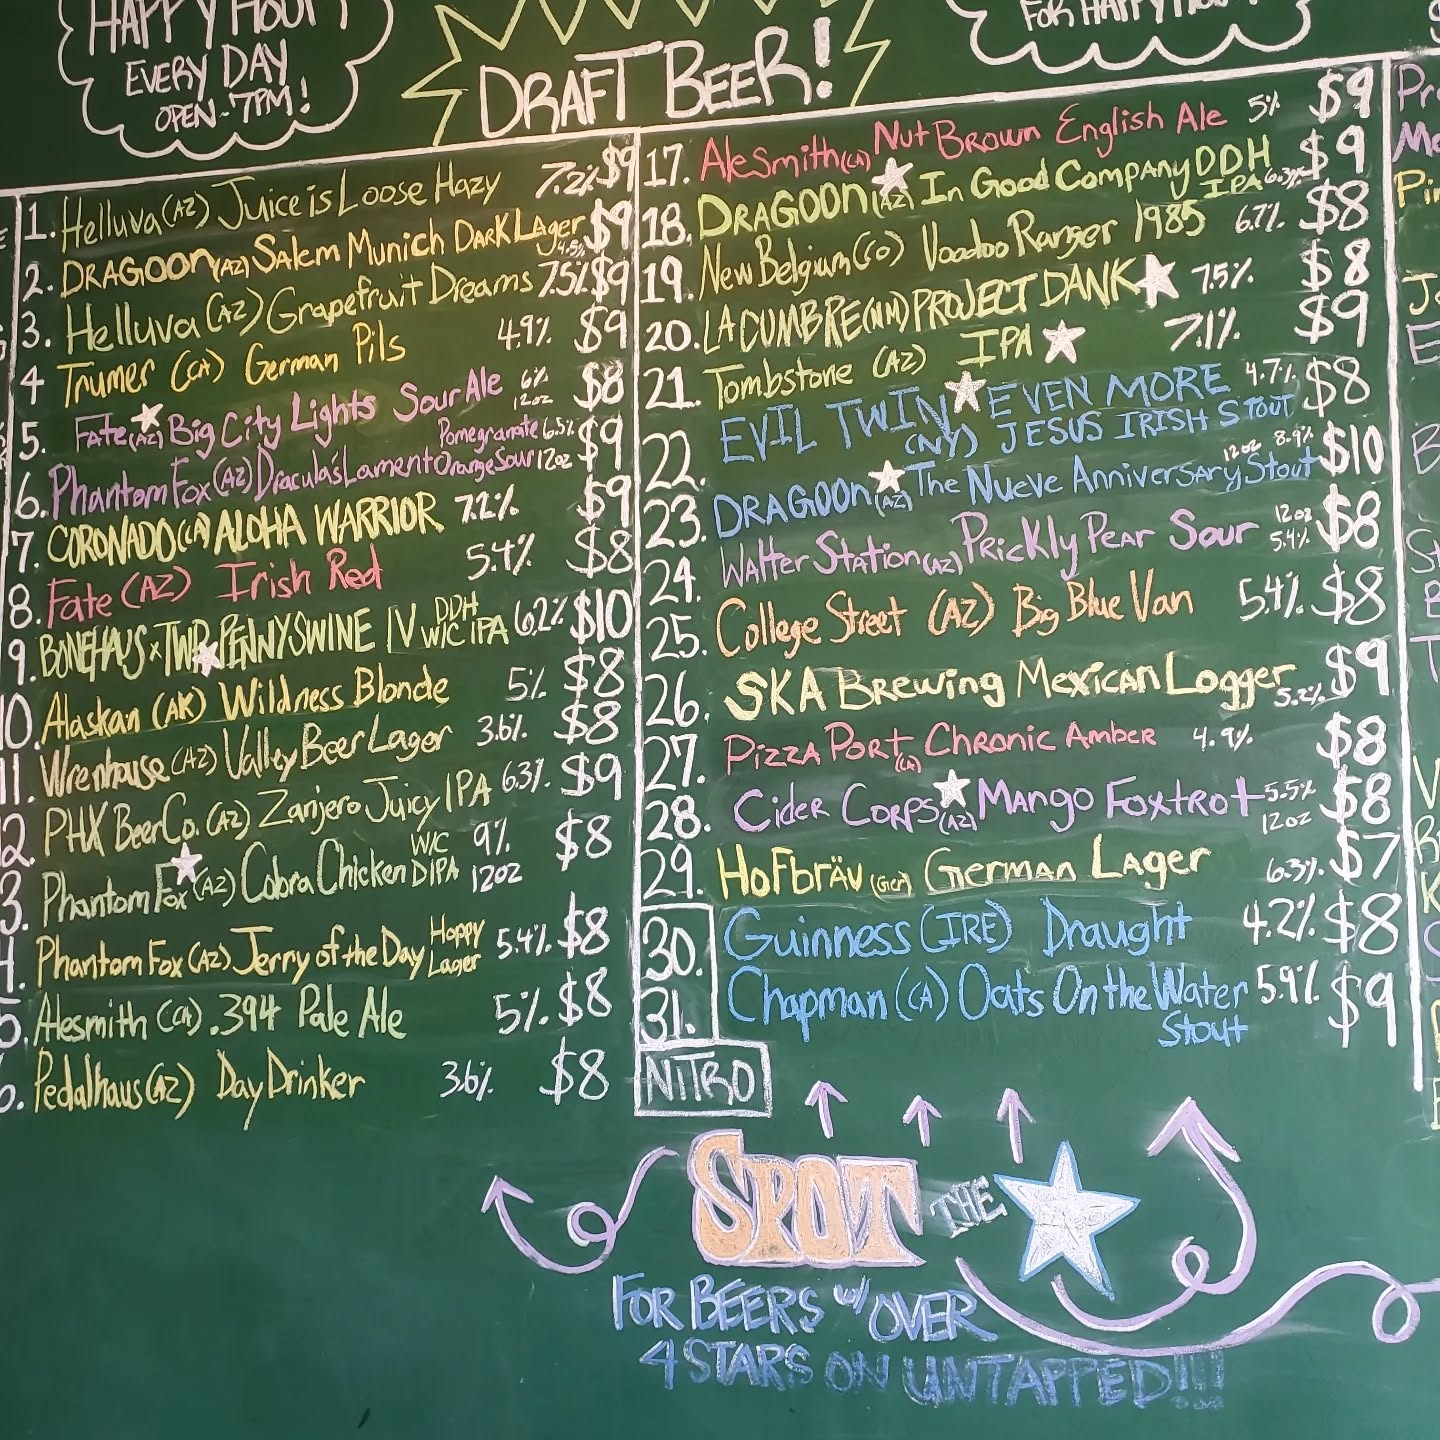 HAPPY HOUR
EVERY DAY
OPEN-7PM!
DRAFT BEER!
FOR HAPPY HOUR
1. Helluva (AZ) Juice is Loose Hazy 7.2% $9
2. DRAGOON (AZ) Salem Munich Dark Lager 4.5% $9
3. Helluva (AZ) Grapefruit Dreams 7.5% $9
4 Trumer (CA) German Pils 4.9% $9
5. Fate (AZ) Big City Lights Sour Ale 6% 12oz $8
6. Phantom Fox (AZ) Dracula's Lament Pomegranate Orange Sour 6.5% 12oz $9
7. CORONADO (CA) ALOHA WARRIOR 7.2% $9
8. Fate (AZ) Irish Red 5.4% $8
9. BONEHAUS x TWR PENNYSWINE IV DDH W/C IPA 6.2% $10
10. Alaskan (AK) Wildness Blonde 5% $8
11. Wrenhouse (AZ) Valley Beer Lager 3.6% $8
2. PHX Beer Co. (AZ) Zanjero Juicy IPA 6.3% $9
3. Phantom Fox (AZ) Cobra Chicken W/C DIPA 9% 12oz $8
4. Phantom Fox (AZ) Jerry of the Day Hoppy Lager 5.4% $8
5. Alesmith (CA) .394 Pale Ale 5% $8
6. Pedalhaus (AZ) Day Drinker 3.6% $8
17. AleSmith (CA) Nut Brown English Ale 5% $9
18. DRAGOON (AZ) In Good Company DDH IPA 6.3% $9
19. New Belgium (CO) Voodoo Ranger 1985 6.7% $8
20. LA CUMBRE (NM) PROJECT DANK 7.5% $8
21. Tombstone (AZ) IPA 7.1% $9
22. EVIL TWIN (NY) EVEN MORE JESUS IRISH Stout 4.7% $8
23. DRAGOON (AZ) The Nueve Anniversary Stout 12oz 8.9% $10
24. Walter Station (AZ) Prickly Pear Sour 12oz 5.4% $8
25. College Street (AZ) Big Blue Van 5.4% $8
26. SKA Brewing Mexican Logger 5.2% $9
27. Pizza Port (CA) Chronic Amber 4.9% $8
28. Cider Corps (AZ) Mango Foxtrot 5.5% 12oz $8
29. Hofbräu (Ger) German Lager 6.3% $7
30. Guinness (IRE) Draught 4.2% $8
31. Chapman (CA) Oats On the Water Stout 5.9% $9
NITRO
SPOT THE
FOR BEERS w/ OVER
4 STARS ON UNTAPPED!!!